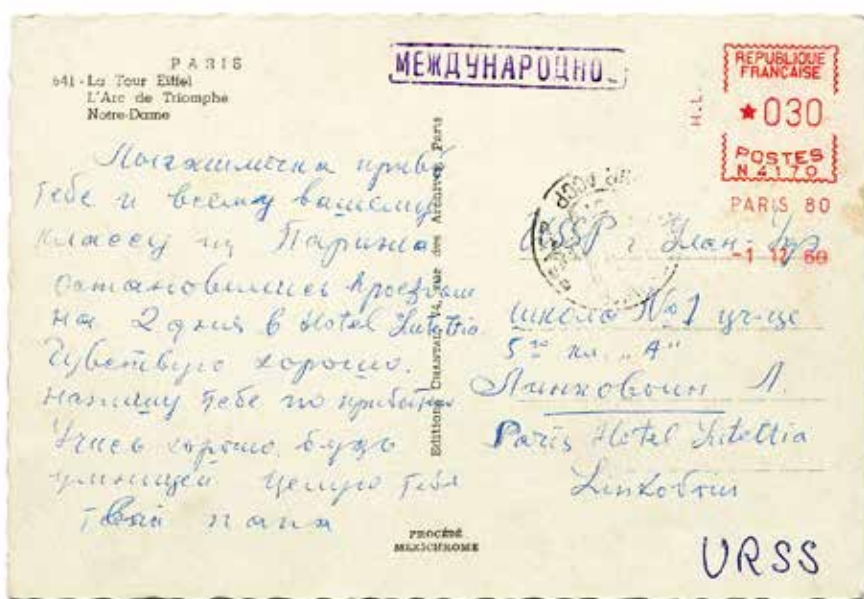 PARIS
641 - La Tour Eiffel
L'Arc de Triomphe
Notre-Dame
МЕЖДУНАРОДНО
H.L.
REPUBLIQUE
FRANÇAISE
★030
POSTES
N 4170
PARIS 80
-1 12 60
тебе и всему вашему
классу из Парижа
остановились проездом
на 2 дня в Hotel Lutettia
Чувствую хорошо.
напишу тебе по
Учись хорошо будь
умницей целую тебя
твой папа
Editions CHANTAL 74, rue des Archives, Paris
PROCÉDÉ
MEXICHROME
USSR г Улан-Удэ
школа №1
5го кл. „А"
Линховоин Л.
Paris Hotel Lutettia
Linkovoin
URSS